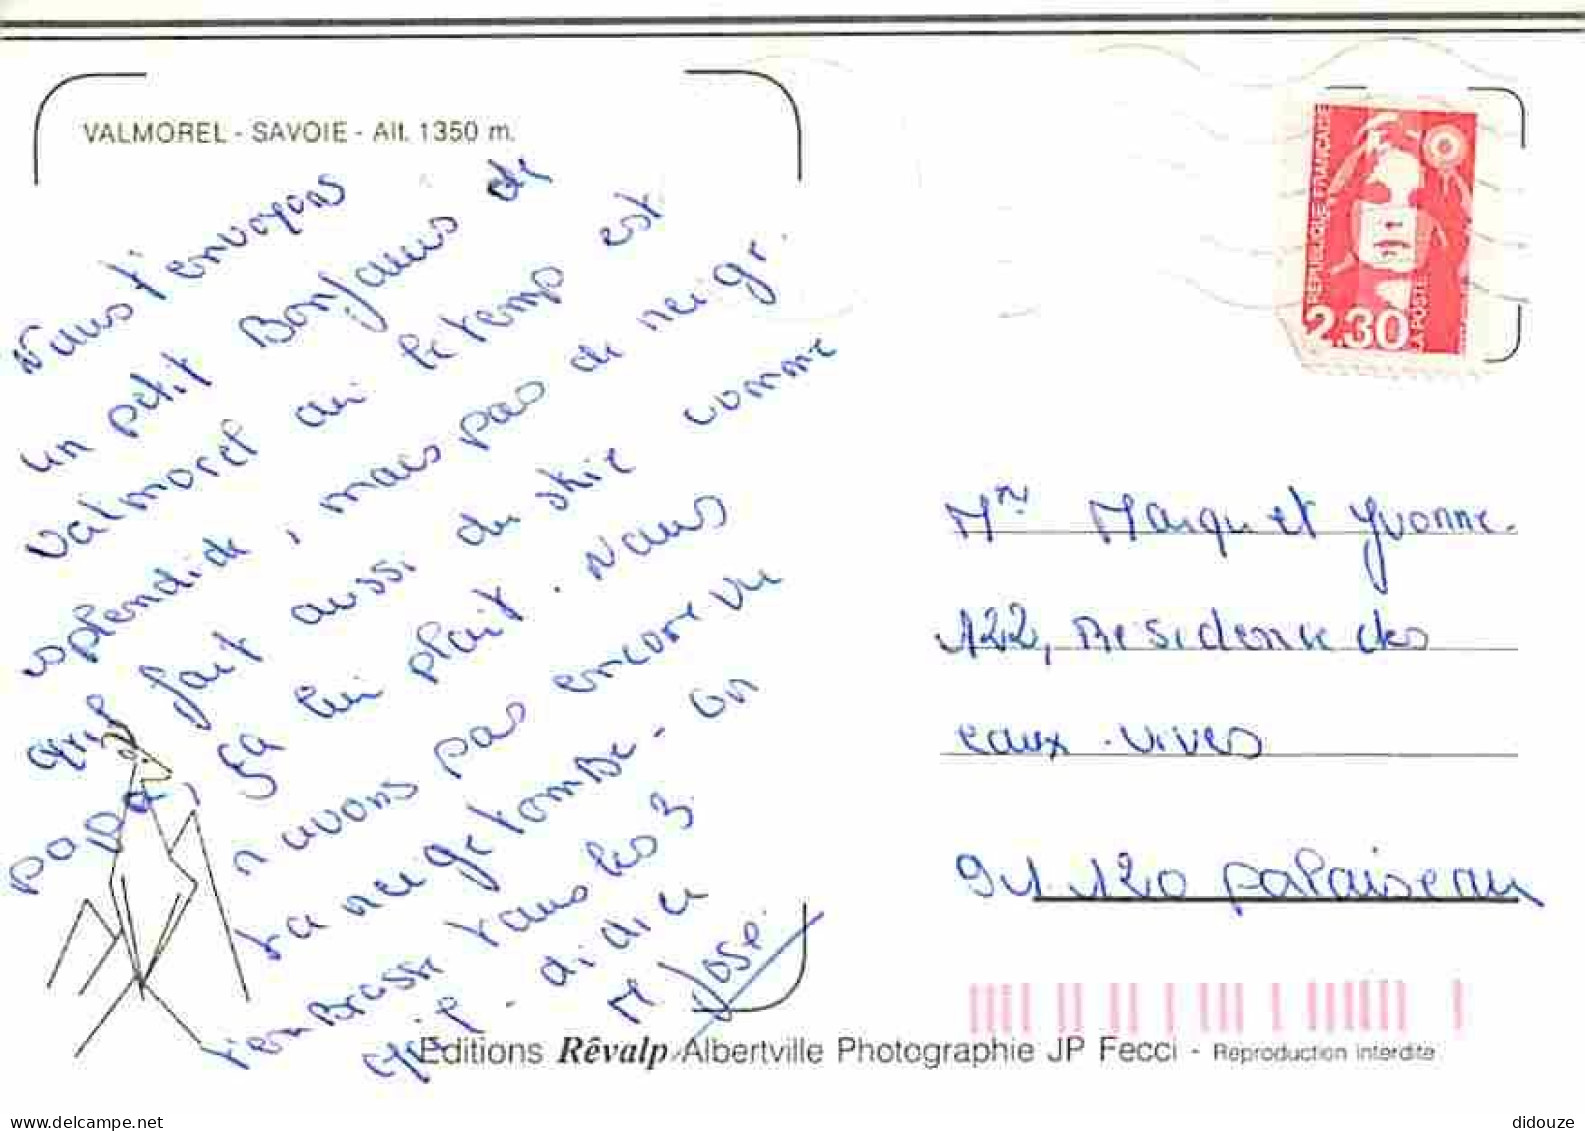 VALMOREL - SAVOIE - Alt. 1350 m.
Nous t'envoyons
un petit Bonjours de
Valmorel ou le temps est
splendide, mais pas de neige.
fait aussi du skie comme
papa, ça lui plait. Nous
n'avons pas encore vu
la neige tombe - on
t'embrasse tous les 3.
didier
M José.
REPUBLIQUE FRANCAISE
2.30
LA POSTE
Yvonne.
122, Residence des
eaux-vives
91.120 palaiseau
Editions Rêvalp Albertville Photographie JP Fecci - Reproduction interdite
didouze